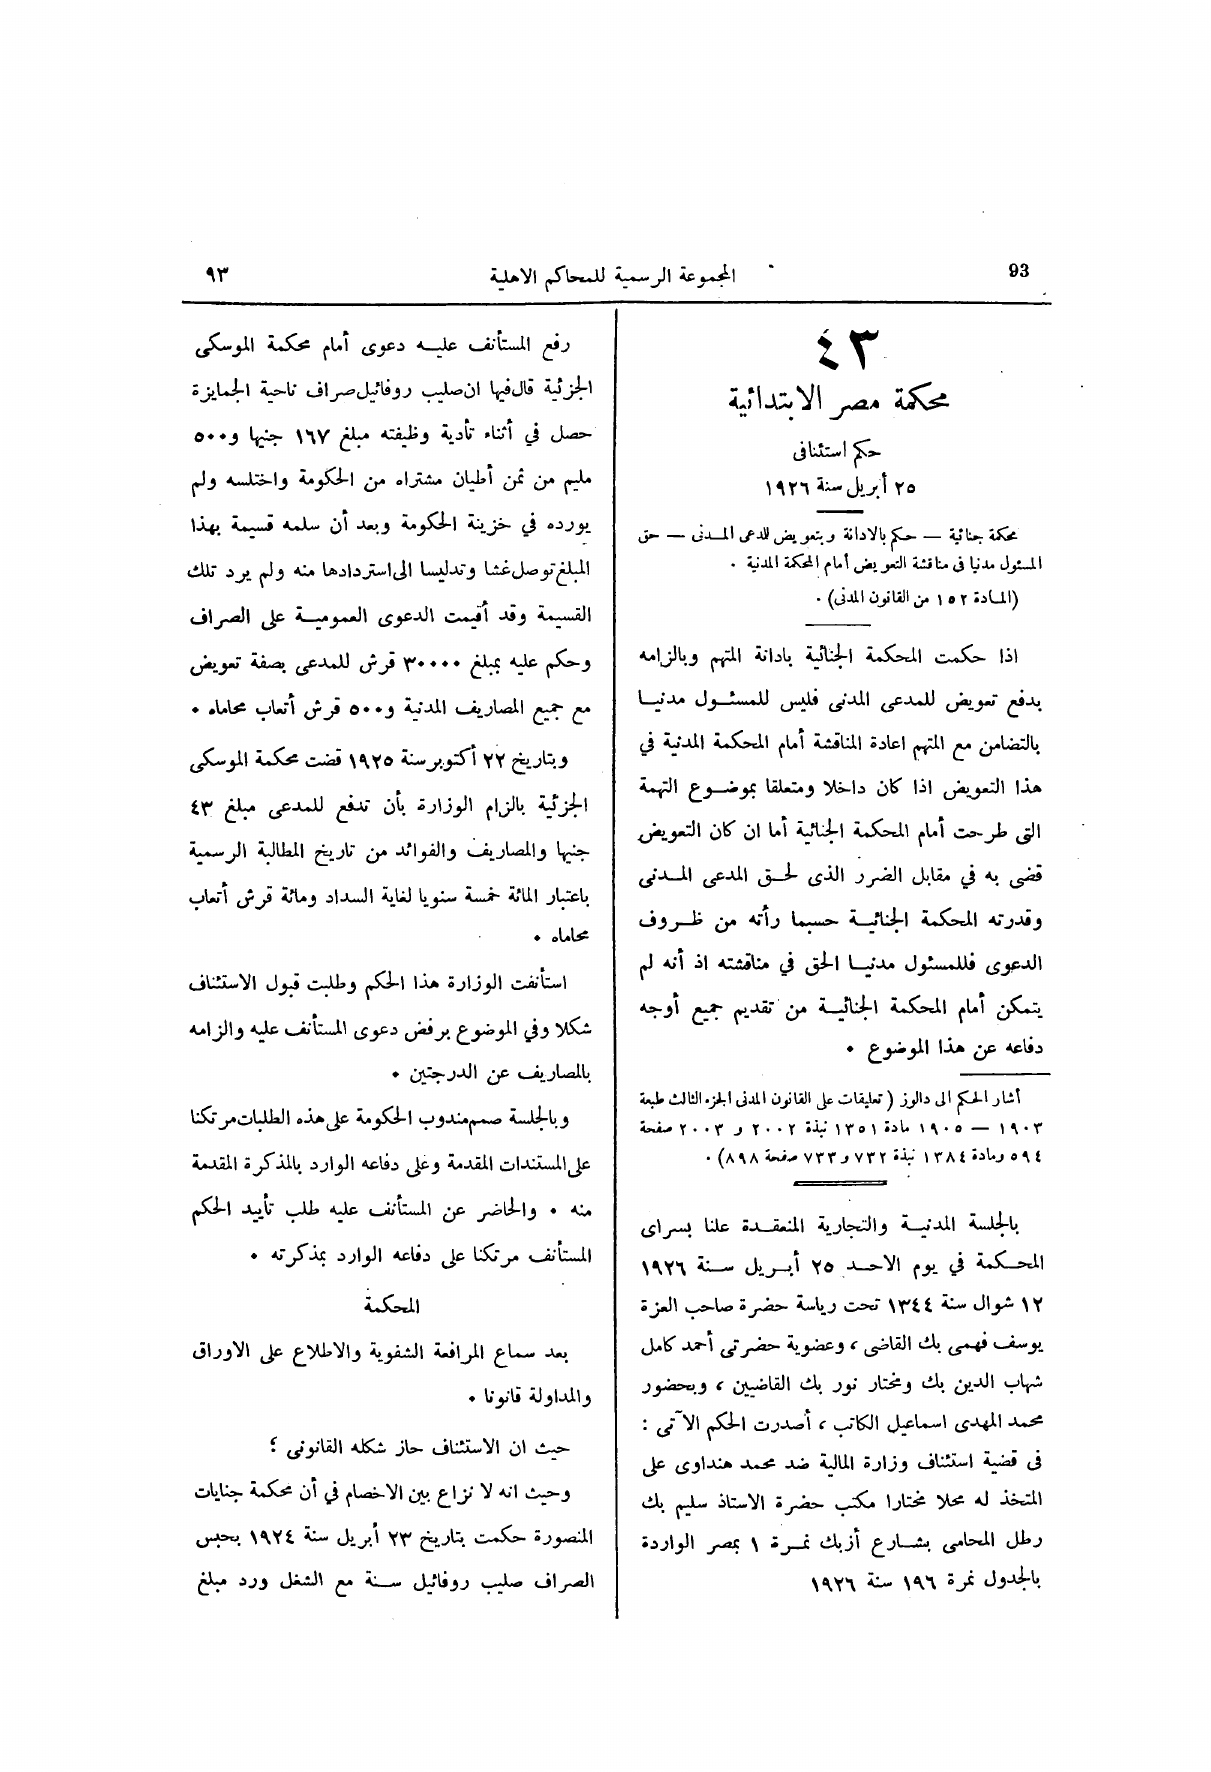 93
المجموعة الرسمية للمحاكم الاهلية
٩٣
٤٣
محكمة مصر الابتدائية
حكم استئنافى
٢٥ أبريل سنة ١٩٢٦
محكمة جنائية — حكم بالادانة وبتعويض للدعى المدنى — حق
المسئول مدنيا فى مناقشة التعويض أمام المحكمة المدنية ٠
(المادة ١٥٢ من القانون المدنى) ٠
اذا حكمت المحكمة الجنائية بادانة المتهم وبالزامه
بدفع تعويض للمدعى المدنى فليس للمسئول مدنيا
بالتضامن مع المتهم اعادة المناقشة أمام المحكمة المدنية في
هذا التعويض اذا كان داخلا ومتعلقا بموضوع التهمة
التى طرحت أمام المحكمة الجنائية أما ان كان التعويض
قضى به في مقابل الضرر الذى لحق المدعى المدنى
وقدرته المحكمة الجنائية حسبما رأته من ظروف
الدعوى فللمسئول مدنيا الحق في مناقشته اذ أنه لم
يتمكن أمام المحكمة الجنائية من تقديم جميع أوجه
دفاعه عن هذا الموضوع ٠
أشار الحكم الى دالوز ( تعليقات على القانون المدنى الجزء الثالث طبعة
١٩٠٣ — ١٩٠٥ مادة ١٣٥١ نبذة ٢٠٠٢ و ٢٠٠٣ صفحة
٥٩٤ ومادة ١٣٨٤ نبذة ٧٣٢ و ٧٣٣ صفحة ٨٩٨) ٠
بالجلسة المدنية والتجارية المنعقدة علنا بسراى
المحكمة في يوم الاحد ٢٥ أبريل سنة ١٩٢٦
١٢ شوال سنة ١٣٤٤ تحت رياسة حضرة صاحب العزة
يوسف فهمى بك القاضى ، وعضوية حضرتي أحمد كامل
شهاب الدين بك ومختار نور بك القاضيين ، وبحضور
محمد المهدى اسماعيل الكاتب ، أصدرت الحكم الآتى :
فى قضية استئناف وزارة المالية ضد محمد هنداوى على
المتخذ له محلا مختارا مكتب حضرة الاستاذ سليم بك
رطل المحامى بشارع أزبك نمرة ١ بمصر الواردة
بالجدول نمرة ١٩٦ سنة ١٩٢٦
رفع المستأنف عليه دعوى أمام محكمة الموسكى
الجزئية قال فيها ان صليب روفائيل صراف ناحية الجمايزة
حصل في أثناء تأدية وظيفته مبلغ ١٦٧ جنيها و٥٠٠
مليم من ثمن أطيان مشتراه من الحكومة واختلسه ولم
يورده في خزينة الحكومة وبعد أن سلمه قسيمة بهذا
المبلغ توصل غشا وتدليسا الى استردادها منه ولم يرد تلك
القسيمة وقد أقيمت الدعوى العمومية على الصراف
وحكم عليه بمبلغ ٣٠٠٠٠ قرش للمدعى بصفة تعويض
مع جميع المصاريف المدنية و٥٠٠ قرش أتعاب محاماه ٠
وبتاريخ ٢٢ أكتوبر سنة ١٩٢٥ قضت محكمة الموسكى
الجزئية بالزام الوزارة بأن تدفع للمدعى مبلغ ٤٣
جنيها والمصاريف والفوائد من تاريخ المطالبة الرسمية
باعتبار المائة خمسة سنويا لغاية السداد ومائة قرش أتعاب
محاماه ٠
استأنفت الوزارة هذا الحكم وطلبت قبول الاستئناف
شكلا وفي الموضوع برفض دعوى المستأنف عليه والزامه
بالمصاريف عن الدرجتين ٠
وبالجلسة صمم مندوب الحكومة على هذه الطلبات مرتكنا
على المستندات المقدمة وعلى دفاعه الوارد بالمذكرة المقدمة
منه ٠ والحاضر عن المستأنف عليه طلب تأييد الحكم
المستأنف مرتكنا على دفاعه الوارد بمذكرته ٠
المحكمة
بعد سماع المرافعة الشفوية والاطلاع على الاوراق
والمداولة قانونا ٠
حيث ان الاستئناف حاز شكله القانونى ؛
وحيث انه لا نزاع بين الاخصام في أن محكمة جنايات
المنصورة حكمت بتاريخ ٢٣ أبريل سنة ١٩٢٤ بحبس
الصراف صليب روفائيل سنة مع الشغل ورد مبلغ